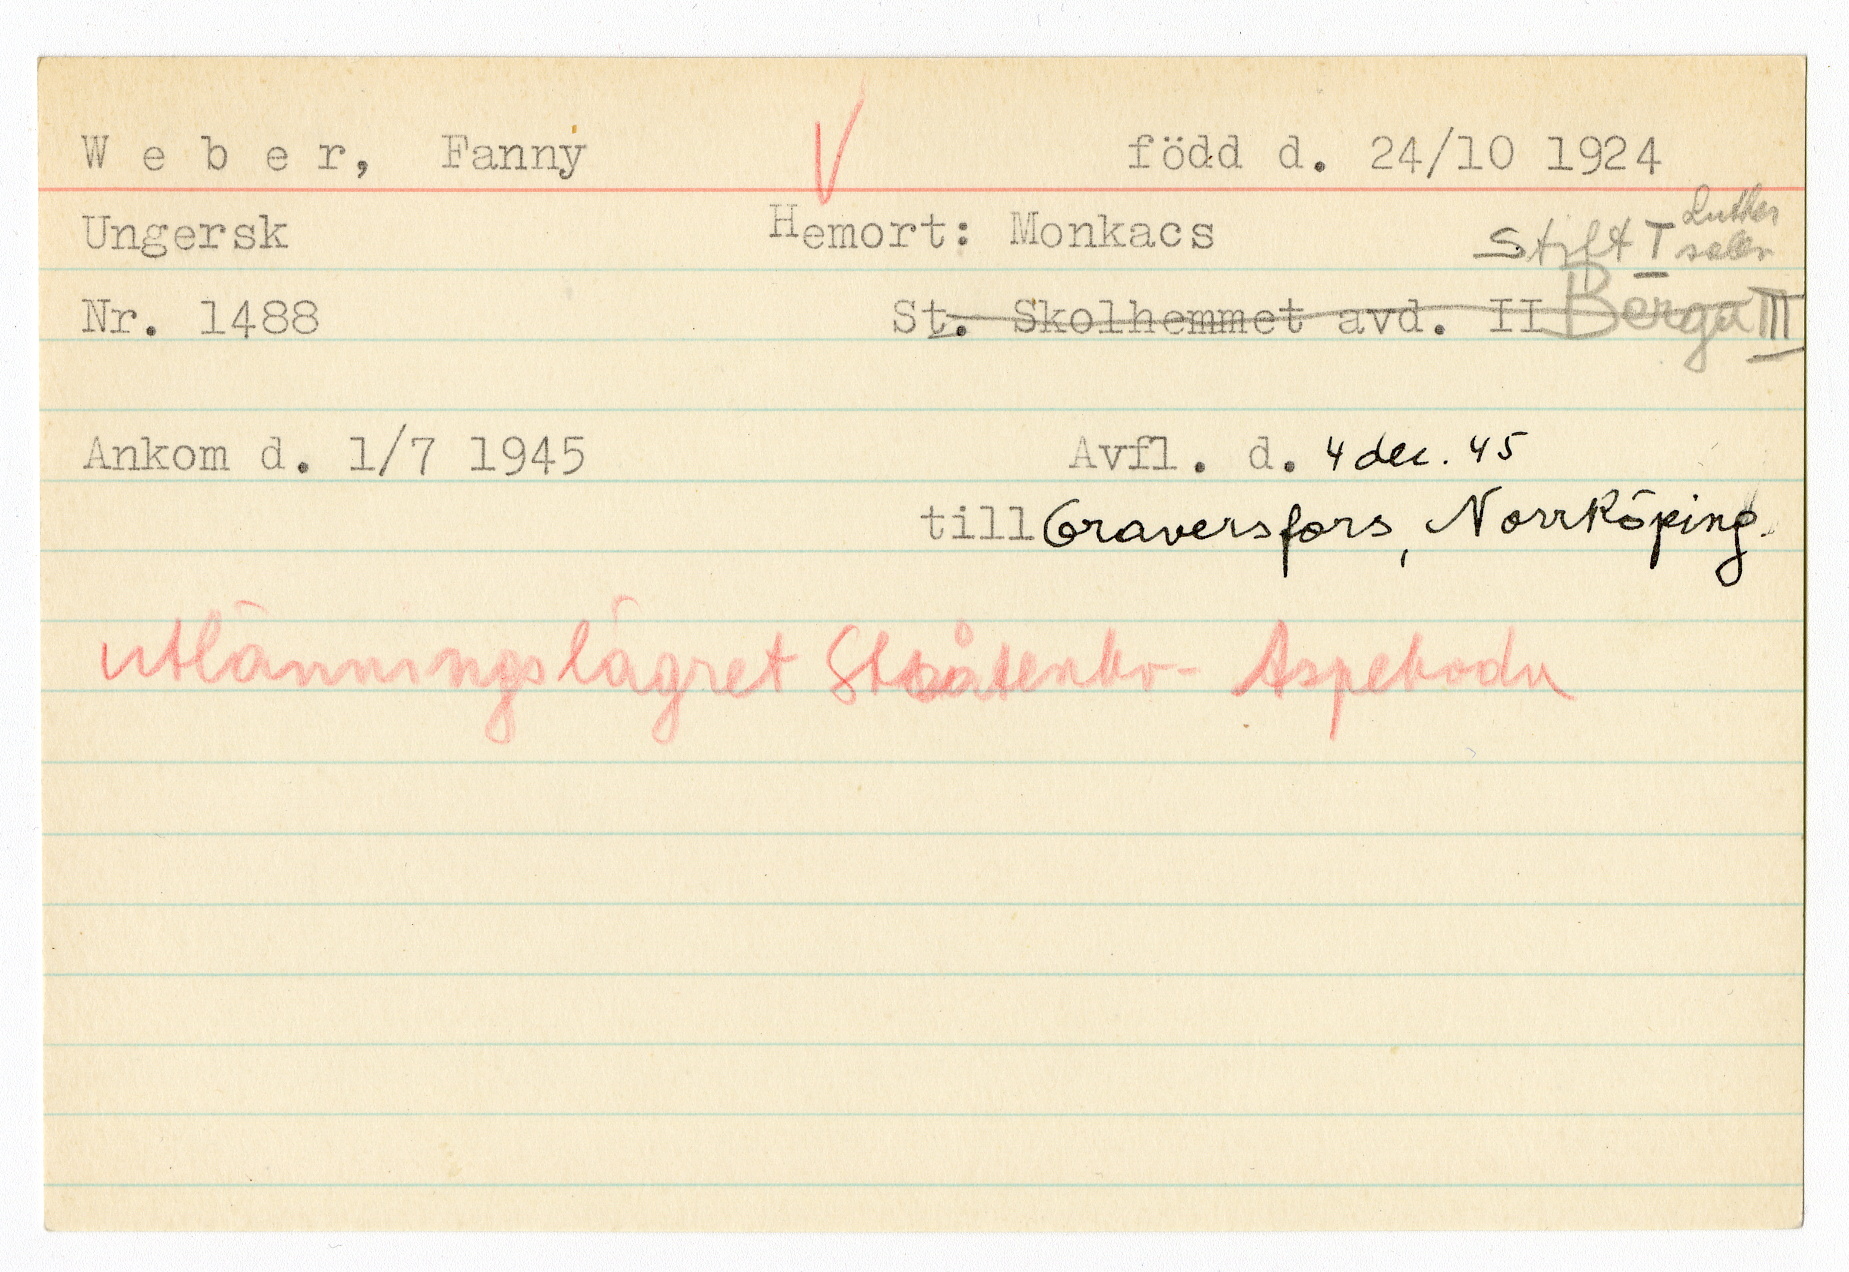 W e b e r, Fanny född d. 24/10 1924
Ungersk Hemort: Monkacs Stift I Luther
Nr. 1488 St. Skolhemmet avd. II Berga III
Ankom d. 1/7 1945 Avfl. d. 4 dec. 45
till Graversfors, Norrköping.
utlänningslägret